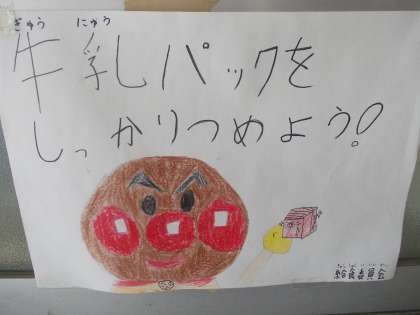 ぎゅう にゅう
牛乳パックを
しっかりつめよう!
給食委員会